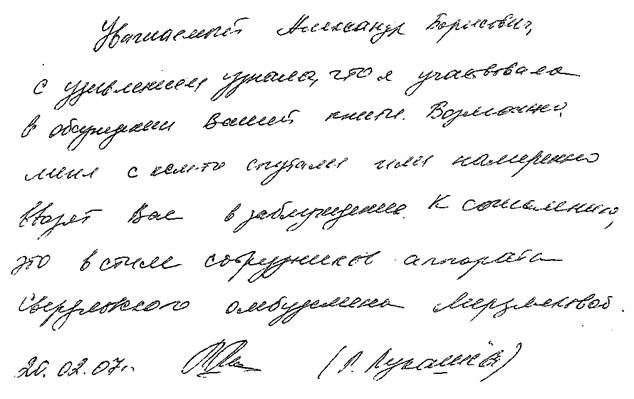 Уважаемый Александр Борисович,
с удивлением узнала, что я участвовала
в обсуждении Вашей книги. Возможно,
меня с кем-то спутали или намеренно
вводят Вас в заблуждение. К сожалению,
это в стиле сотрудников аппарата
Свердловского омбудсмена Мерзляковой.
20.02.07г. (Л. Лукашёва)